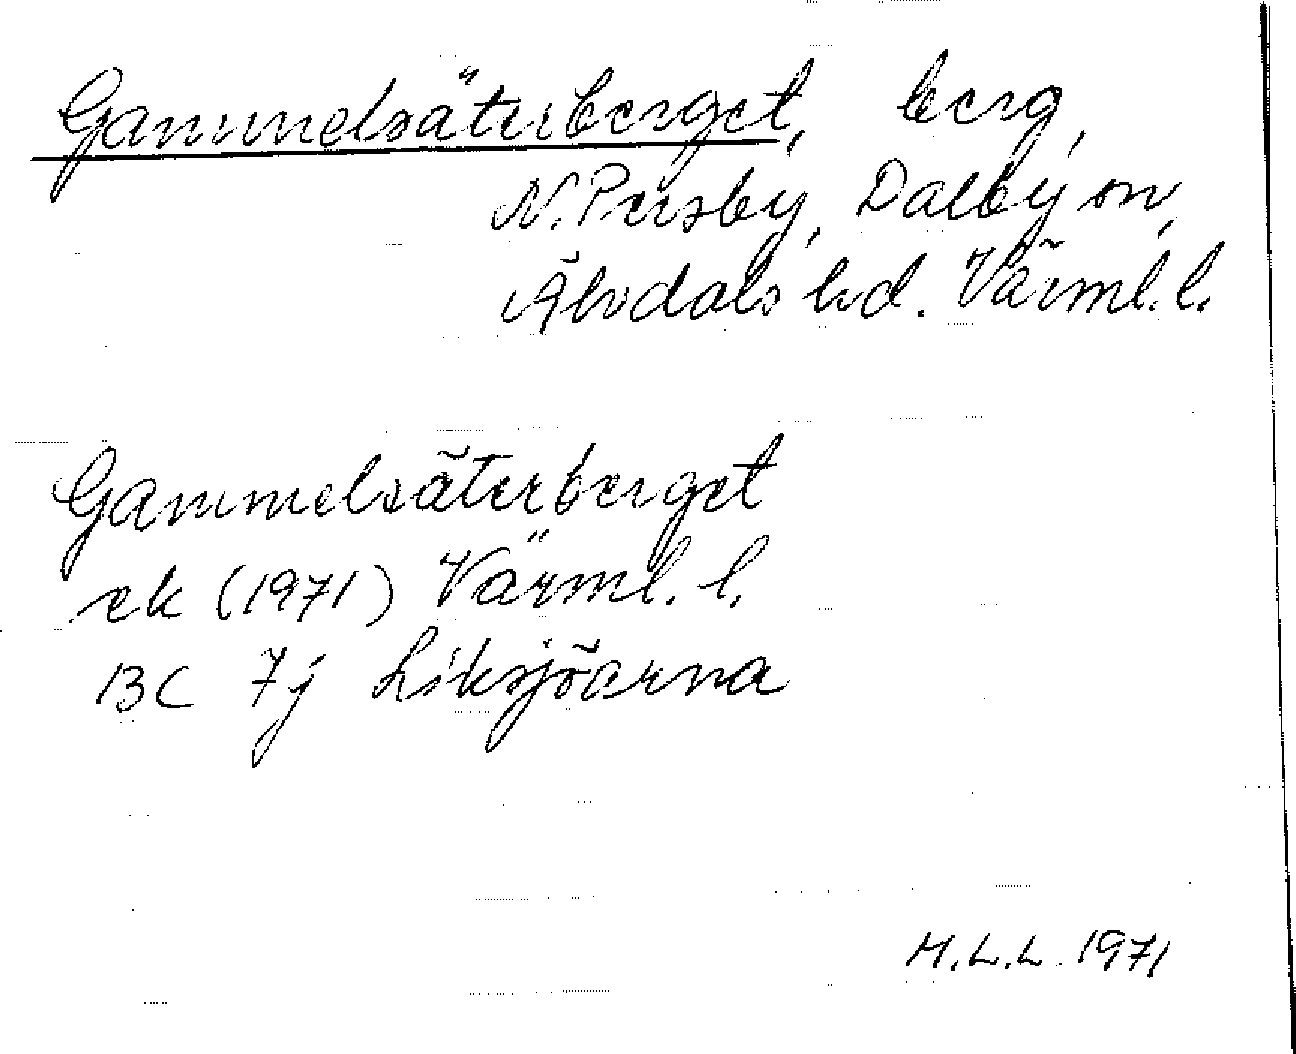 Gammelsäterberget, berg,
N. Persby, Dalby sn,
Älvdals hd. Värml. l.
Gammelsäterberget
ek (1971) Värml. l.
13C 7j Liksjöarna
M.L.L. 1971